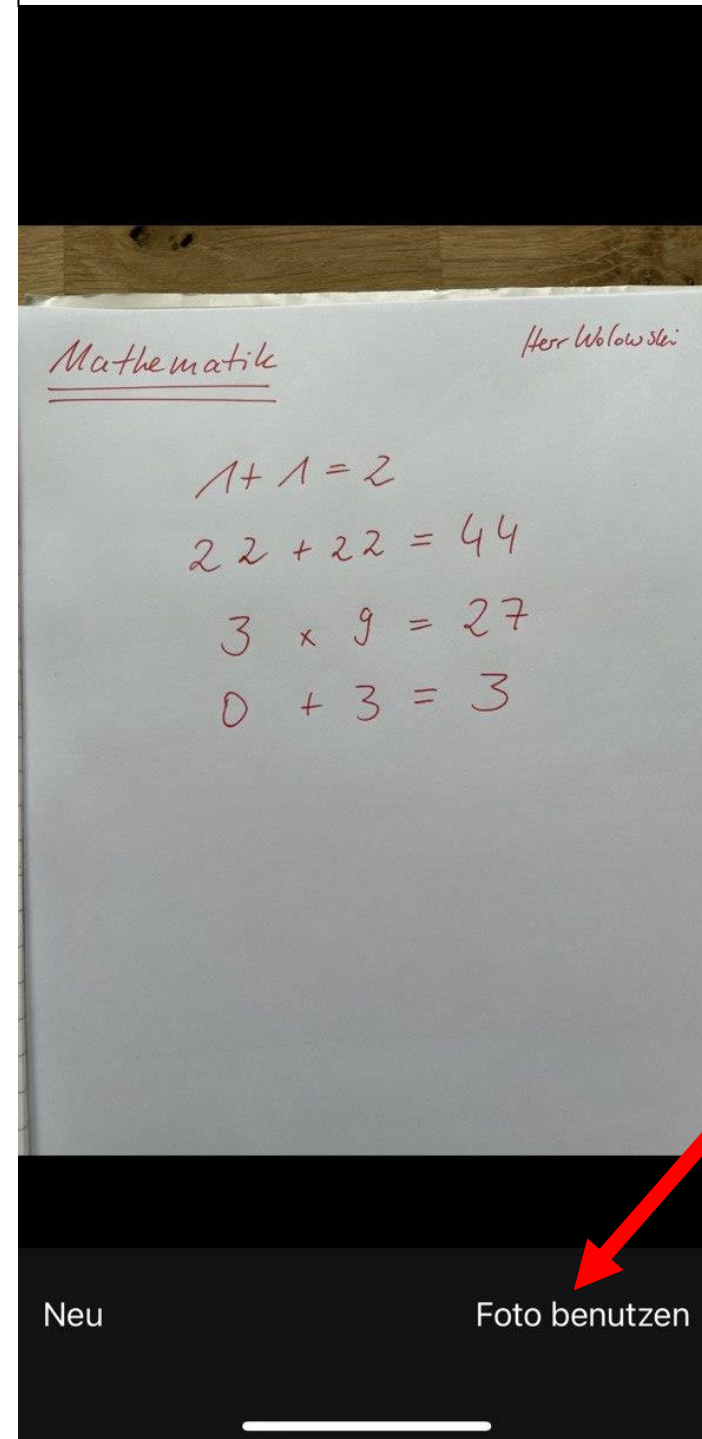 Mathematik Herr Wolowski
1 + 1 = 2
22 + 22 = 44
3 x 9 = 27
0 + 3 = 3
Neu Foto benutzen